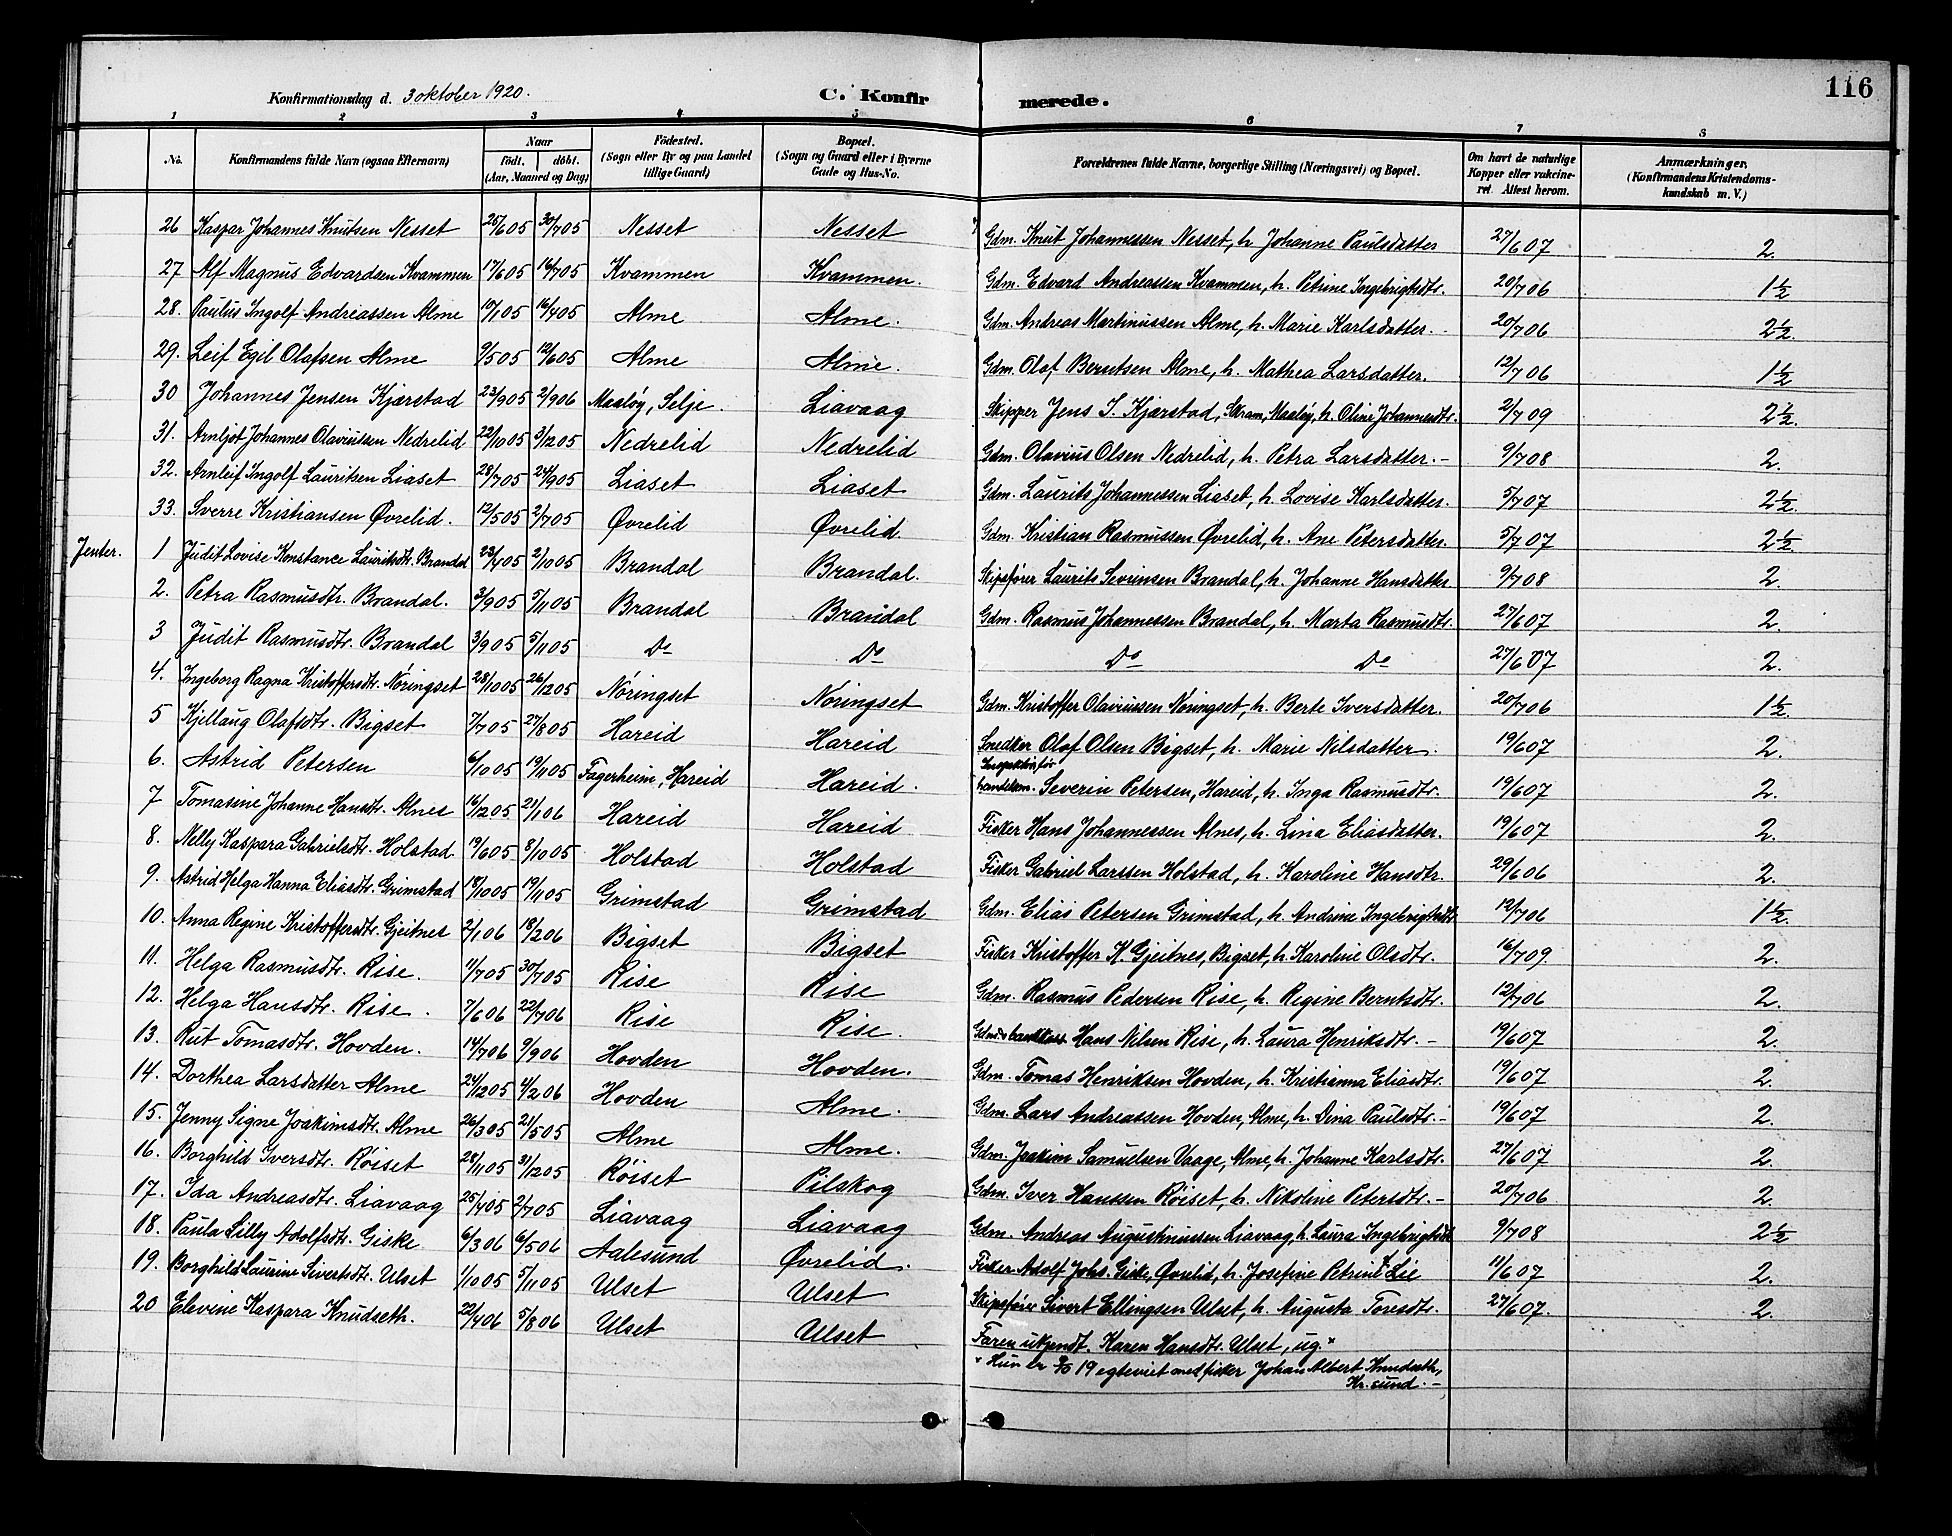 116
Konfirmationsdag d. 3 oktober 1920.
C. Konfirmerede.
1 2 3 4 5 6 7 8
No. Konfirmandens fulde Navn (ogsaa Efternavn) Naar født. døbt. (Aar, Maaned og Dag) Fødested. (Sogn eller By og paa Landet tillige Gaard) Bopæl. (Sogn og Gaard eller i Byerne Gade og Hus-No. Forældrenes fulde Navne, borgerlige Stilling (Næringsvei) og Bopæl. Om havt de naturlige Kopper eller vakcineret. Attest herom. Anmærkninger, (Konfirmandens Kristendomskundskab m. V.)
26 Kaspar Johannes Knutsen Nesset 25/6 05 30/7 05 Nesset Nesset Gdm. Knut Johannessen Nesset, h. Johanne Paulsdatter 27/6 07 2.
27 Alf Magnus Edvardsen Kvammen 17/6 05 16/7 05 Kvammen Kvammen. Gdm. Edvard Andreassen Kvammen, h. Petrine Ingebrigtsdtr. 20/7 06 1½
28. Paulus Ingolf Andreassen Alme 10/1 05 16/4 05 Alme Alme. Gdm. Andreas Martinussen Alme, h. Marie Karlsdatter.- 20/7 06 2½.
29. Leif Egil Olafsen Alme 9/5 05 12/6 05 Alme Alme. Gdm. Olaf Berntsen Alme, h. Mathea Larsdatter. 12/7 06 1½
30 Johannes Jensen Kjærstad 23/9 05 2/9 06 Maaløy, Selje. Liavaag Skipper Jens J. Kjærstad, Skram, Maaløy, h. Oline Johannesdtr. 2/7 09 2½.
31. Arnljot Johannes Olaviussen Nedrelid 22/10 05 3/12 05 Nedrelid Nedrelid Gdm. Olavius Olsen Nedrelid, h. Petra Larsdatter.- 9/7 08 2.
32. Arnleif Ingolf Lauritsen Liaset 28/7 05 24/9 05 Liaset Liaset Gdm. Laurits Johannessen Liaset, h. Lovise Karlsdatter. 5/7 07 2½.
33. Sverre Kristiansen Øvrelid. 12/5 05 2/7 05 Øvrelid Øvrelid Gdm. Kristian Rasmussen Øvrelid, h. Ane Petersdatter. 5/7 07 2½.
Jenter. 1 Judit Lovise Konstance Lauritsdtr. Brandal 23/4 05 2/10 05 Brandal Brandal. Skipsfører Laurits Severinsen Brandal, h. Johanne Hansdatter 9/7 08 2.
2. Petra Rasmusdtr. Brandal. 3/9 05 5/11 05 Brandal Brandal Gdm. Rasmus Johannessen Brandal, h. Marta Rasmusdtr. 27/6 07 2.
3 Judit Rasmusdtr. Brandal 3/9 05 5/11 05 Do Do Do Do 27/6 07 2.
4. Ingeborg Ragna Kristoffersdtr. Nøringset 28/10 05 26/12 05 Nøringset Nøringset Gdm. Kristoffer Olaviussen Nøringset, h. Berte Iversdatter. 20/7 06 1½.
5 Kjellaug Olafsdtr. Bigset 7/7 05 27/8 05 Hareid Hareid Snedker Olaf Olsen Bigset, h. Marie Nilsdatter. 19/6 07 2.
6. Astrid Petersen 6/10 05 19/11 05 Fagerheim, Hareid Hareid. Severin Petersen, Hareid, h. Inga Rasmusdtr. 19/6 07 2.
7 Tomasine Johanne Hansdtr. Alnes 16/12 05 21/1 06 Hareid Hareid Fisker Hans Johannessen Alnes, h. Lina Eliasdatter. 19/6 07 2.
8. Nelly Kaspara Gabrielsdtr. Holstad 19/6 05 8/10 05 Holstad Holstad Fisker Gabriel Larssen Holstad, h. Karoline Hansdtr. 29/6 06 2.
9. Astrid Helga Hanna Eliasdtr. Grimstad 18/10 05 19/11 05 Grimstad Grimstad Gdm. Elias Petersen Grimstad, h. Andrine Ingebrigtsdtr 12/7 06 1½.
10. Anna Regine Kristoffersdtr. Gjeitnes 2/1 06 18/2 06 Bigset Bigset Fisker Kristoffer K. Gjeitnes, Bigset, h. Karoline Olsdtr. 16/7 09. 2.
11. Helga Rasmusdtr. Rise. 11/7 05 30/7 05 Rise Rise Gdm. Rasmus Pedersen Rise, h. Regine Berntsdtr. 12/7 06 2.
12. Helga Hansdtr. Rise. 7/6 06 22/7 06 Rise Rise. Hans Nilsen Rise, h. Laura Henriksdtr.- 19/6 07 2.
13. Rut Tomasdtr. Hovden. 14/7 06 9/9 06 Hovden Hovden. Gdm. Tomas Henriksen Hovden, h. Kristianna Eliasdtr. 19/6 07 2.
14. Dorthea Larsdatter Alme 24/12 05 4/2 06 Hovden Alme. Gdm. Lars Andreassen Hovden, Alme, h. Dina Paulsdtr.- 19/6 07 2.
15. Jenny Signe Joakimsdtr. Alme 26/3 05 21/5 05 Alme Alme. Gdm. Joakim Samuelsen Vaage, Alme, h. Johanne Karlsdtr. 27/6 07 2.
16. Borghild Iversdtr. Røiset 28/11 05 31/12 05 Røiset Pilskog Gdm. Iver Hanssen Røiset, h. Nikoline Petersdtr.- 20/7 06 2.
17. Ida Andreasdtr. Liavaag 25/4 05 2/7 05 Liavaag Liavaag Gdm. Andreas Augustinussen Liavaag, h. Laura Ingebrigtsdtr 9/7 08 2½
18. Paula Lilly Adolfsdtr. Giske. 6/3 06 6/5 06 Aalesund Øvrelid. Fisker Adolf Johs. Giske, Øvrelid, h. Josefine Petrine Lie 11/6 07 2.
19. Borghild Laurine Sivertsdtr. Ulset 1/10 05 5/11 05 Ulset Ulset Skipsfører Sivert Ellingsen Ulset, h. Augusta Toresdtr. 27/6 07. 2
20 Elevine Kaspara Knudseth. 22/4 06 5/8 06 Ulset Ulset Faren ukjendt. Karen Hansdtr. Ulset, ug.×
× Hun er 19 egteviet med fisker Johan Albert Knudseth,
Kr.sund.-